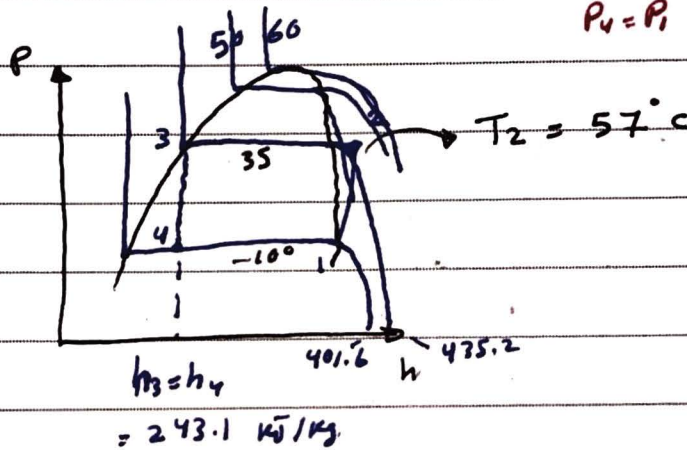 P₄ = P₁
50 60
P
3
35
2
T₂ = 57°C
4
-10°
1
401.6
435.2
h
h₃ = h₄
= 243.1 kJ/kg